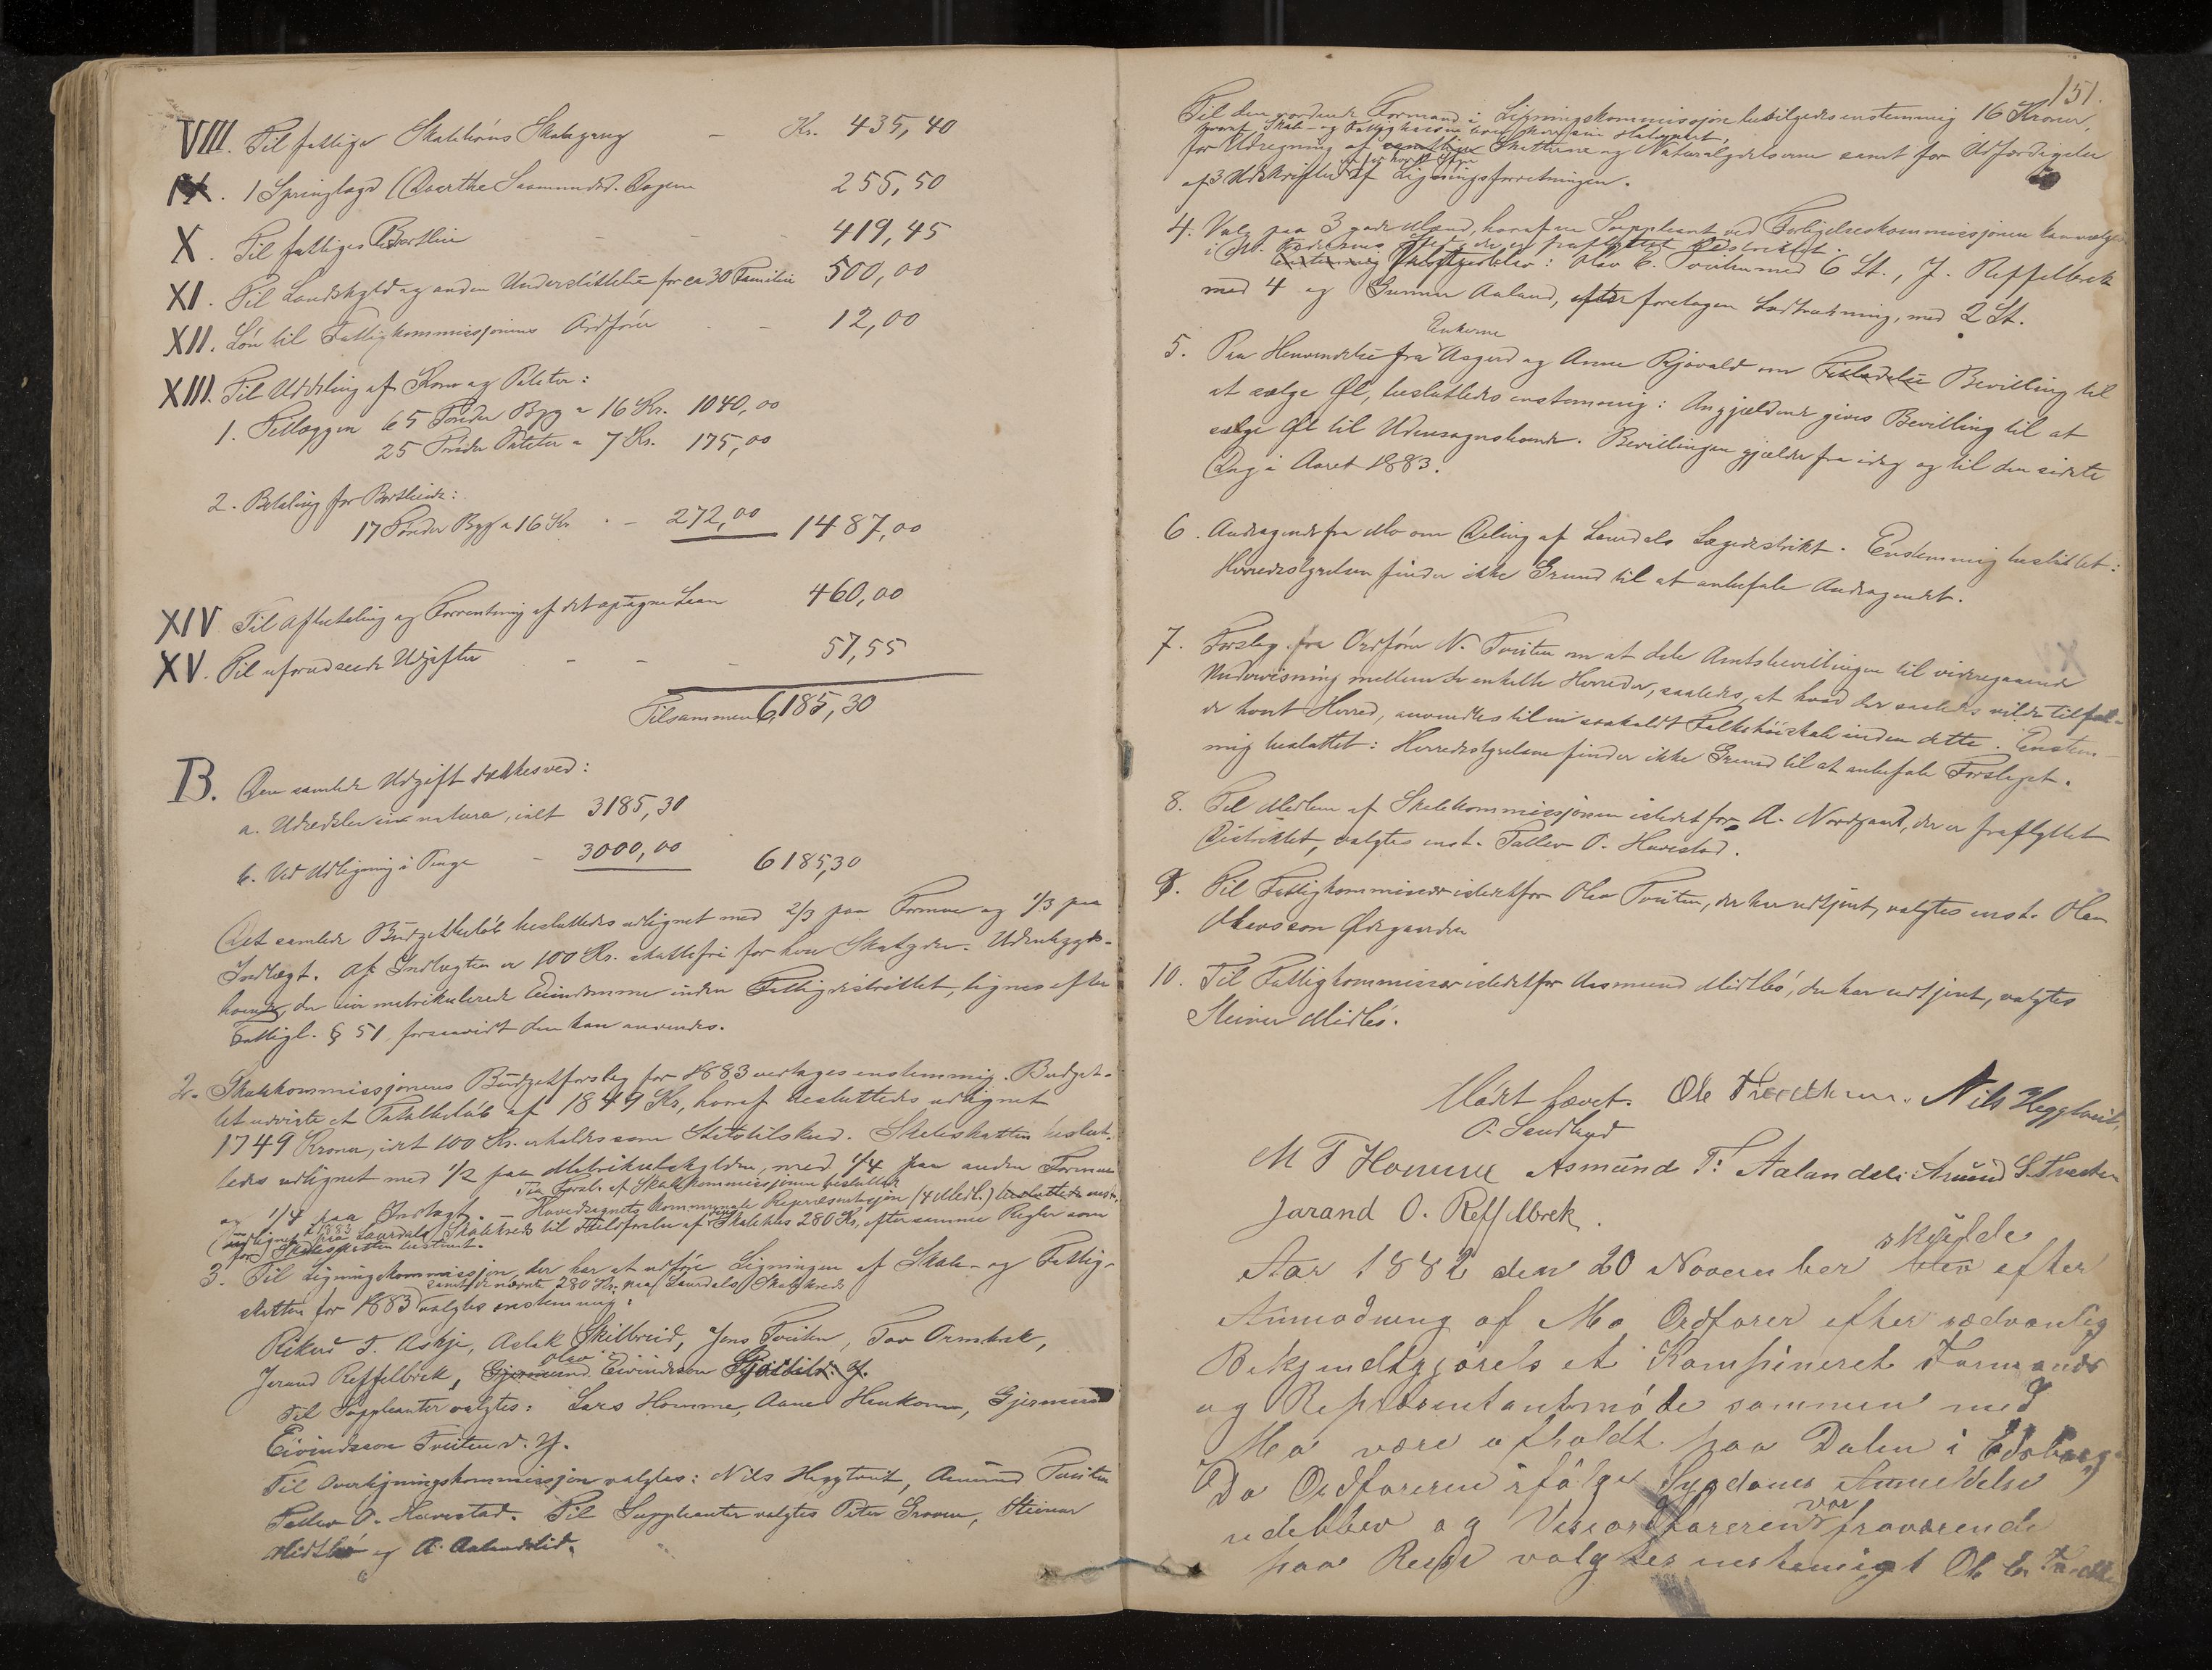 VIII. Til fattige Skolebørns Skolegang – Kr. 435,40
IX. 1 Springlægd (Dorthe Saamundsd. Dagen 255,50
X. Til fattiges Bortleie – – 419,45
XI. Til Landskyld og anden Understøttelse for ca 30 Familier 500,00
XII. Løn til Fattigkommissjonens Ordfører – 12,00
XIII. Til Uddeling af Korn og Poteter:
1. Tillæggen 65 Tønder Byg a 16 Kr. 1040,00
25 Tønder Poteter a 7 Kr. 175,00
2. Betaling for Bortleiede:
17 Tønder Byg a 16 Kr. – 272,00 1487,00
XIV Til Afbetaling og Forrentning af det optagne Laan 460,00
XV. Til uforudseede Udgifter – – – 57,55
Tilsammen 6,185,30
B. Den samlede Udgift dækkes ved:
a. Udredsler in natura, ialt 3185,30
b. Ved Udligning i Penge – 3000,00 6185,30
Det samlede Budgetbeløb besluttedes udlignet med 2/3 paa Formue og 1/3 paa
Indtægt. Af Indtægten er 100 Kr. skattefri for hver Skatyder. Udenbygds-
boende, der eier matrikulerede Eiendomme inden Fattigdistriktet, lignes efter
Fattigl. § 51 forsaavidt den kan anvendes.
2. Skolekommissjonens Budgetforslag for 1883 vedtages enstemmig. Budget-
tet udviste et Totalbeløb af 1849 Kr, hvoraf besluttedes udlignet
1749 Kroner, idet 100 Kr. erholdes som Statstilskud. Skoleskatten beslut-
tedes udlignet med 1/2 paa Matrikulskylden, med 1/4 paa anden Formue
og 1/4 paa Indtægt. –
Paa Forsl. af Skolekommissjonen besluttet
Hovedsognets kommunale Repræsentasjon (4 Medl.) besluttede enst.
udlignet i 1883 paa Laurdals Skolekreds til Istandsættelse af Skolehus 280 Kr, efter samme Regler som
for Skoleskatten bestemt.
3. Til Ligningskommissjon, der har at udføre Ligningen af Skole- og Fattig-
samt de nævnte 280 Kr. paa Laurdals Skolekreds
skatten for 1883 valgtes enstemmig:
Rikard T. Askje, Aslak Skilbreid, Jens Tveiten, Tov Ormbrek,
Jarand Reffelbrek, Gjermund Olav Eivindsson
Til Suppleanter valgtes: Lars Homme, Aanen Haukom, Gjermund
Eivindsson Tveiten d. y.
Til Overligningskommissjon valgtes: Nils Heggtveit, Amund Tveiten
Tallev O. Havrestad. Til Suppleanter valgtes Peter Groven, Steinar
Midtbø og A. Aalandslid.
151.
Til den vordende Formand i Ligningskommissjonen bevilgedes enstemmig 16 Kroner,
for Udregning af Skatterne og Naturalydelserne samt for Udfærdigelse
af 3 Udskrifter af Ligningsforretningen.
4. Valg paa 3 gode Mænd, hvoraf en Suppleant ved Forligelseskommissjonen kan vælges
i Sted, der er fraflyttet Distriktet.
Valgtes blev: Olav E. Tveiten med 6 St., J. Reffelbrek
med 4 og Gunnar Aaland, efter foretagen Lodtrækning, med 2 St.
5. Paa Henvendelse fra Enkerne Aasgerd og Anne Rjåvald om Tilladelse Bevilling til
at sælge Øl, besluttedes enstemmig: Angjældende gives Bevilling til at
sælge Øl til Udensognsboende. Bevillingen gjælder fra idag og til den sidste
Dag i Aaret 1883.
6. Andragende fra Mo om Deling af Laurdals Lægedistrikt. Enstemmig besluttet:
Herredsstyrelsen finder ikke Grund til at anbefale Andragendet.
7. Forslag fra Ordfører N. Tveiten om at dele Amtsbevillingen til videregaaende
Undervisning mellem de enkelte Herreder, saaledes, at hvad der saaledes vilde tilfal-
de hvert Herred, anvendtes til en saakaldt Folkehøiskole inden dette. Enstem-
mig besluttet: Herredsstyrelsen finder ikke Grund til at anbefale Forslaget.
8. Til Medlem af Skolekommissjonen istedetfor A. Nordgaard, der er fraflyttet
Distriktet, valgtes enst. Tallev O. Havrestad.
9. Til Fattigkommissær istedetfor Olav Tveiten, der har udtjent, valgtes enst. Olav
Olavsson Ødegaarden
10. Til Fattigkommissær istedetfor Aasmund Midtbø, der har udtjent, valgtes
Steinar Midtbø.
Mødet hævet. Nils Heggtveit,
O. Sendbyd
M T Homme Asmund T: Aalandslie Amund S. Tveiten
Jarand O. Reffelbrek.
Aar 1882 den 20 November skulde blev efter
Anmodning af Mo Ordfører efter sædvanlig
Bekjendtgjørels et Kompineret Formands
og Repræsentantmøde sammen med
Mo være afholdt paa Dalen i Eidsborg.
Da Ordføreren ifølge Sygdoms Anmeldelse
udeblev og Viseordføreren var fraværende
paa Reise valgtes enstemigt Ole